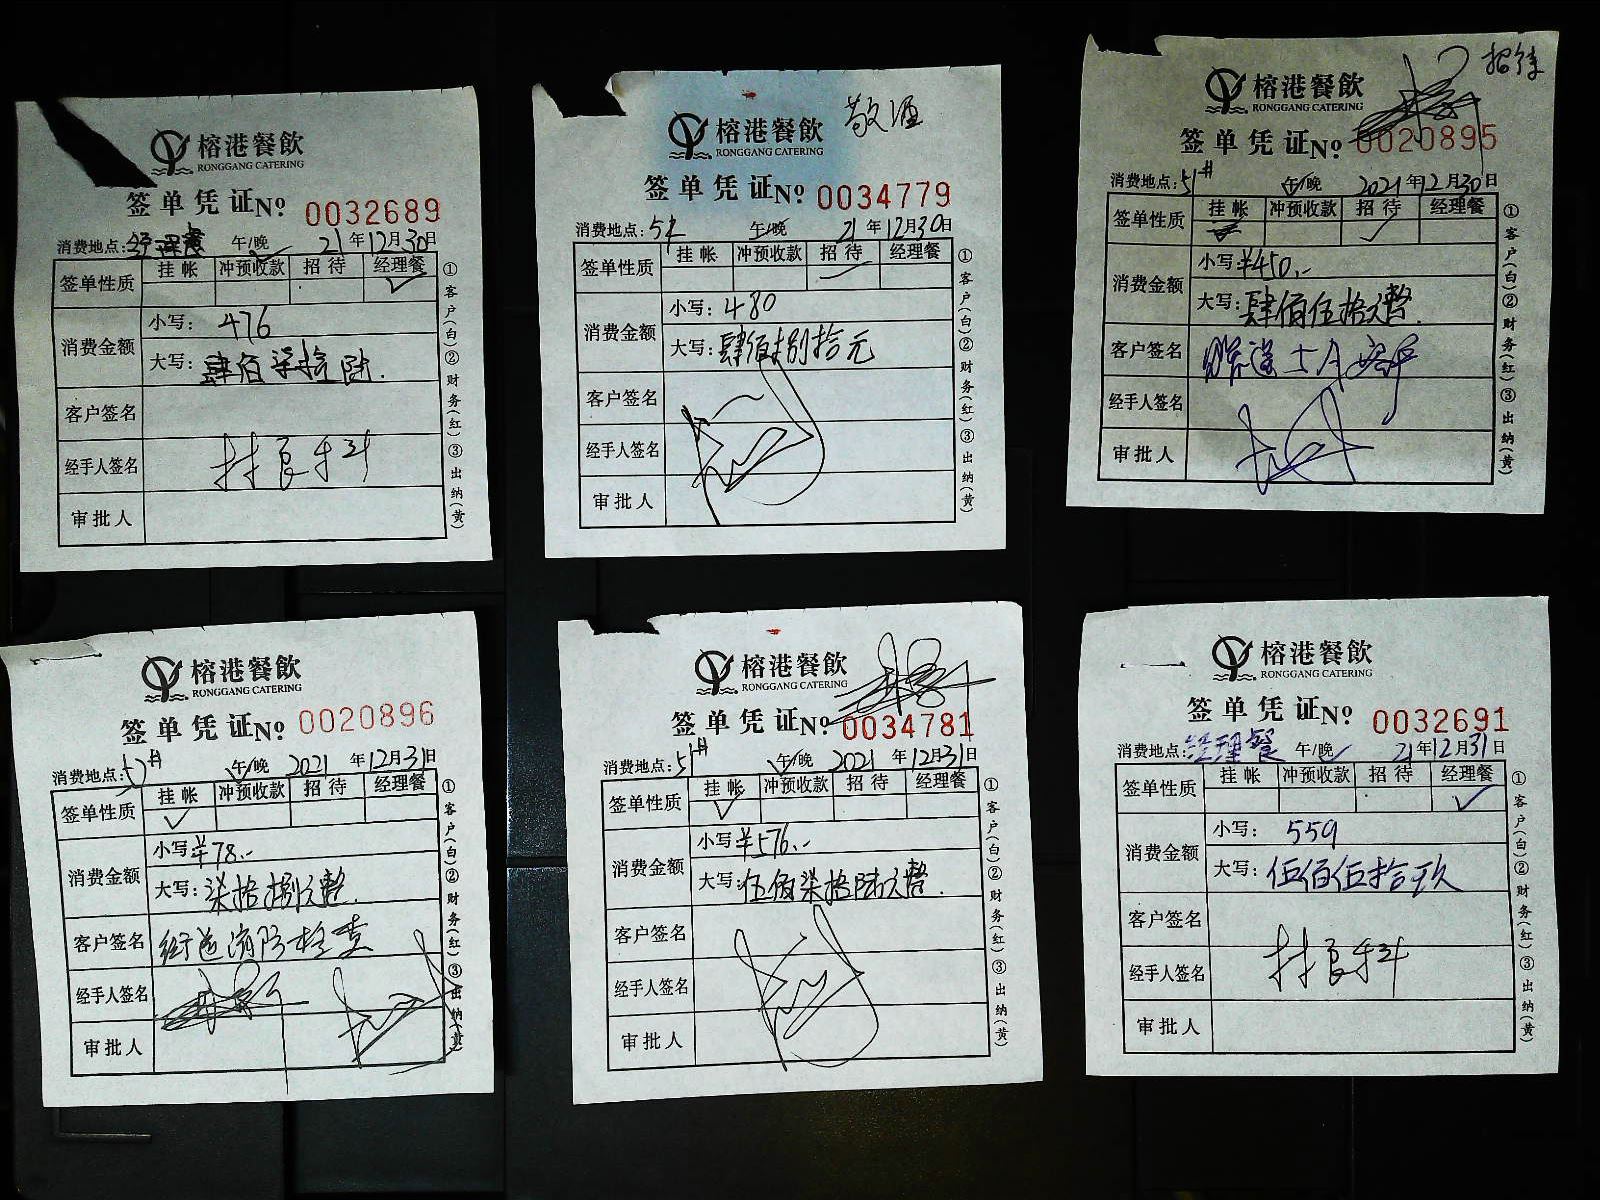 榕港餐飲
RONGGANG CATERING
签单凭证 No 0032689
消费地点: 午/晚 21年12月30日
签单性质 挂帐 冲预收款 招待 经理餐
✓
消费金额 小写: 476
大写: 肆佰柒拾陆.
客户签名
经手人签名
审批人
①客户(白)②财务(红)③出纳(黄)
敬酒
榕港餐飲
RONGGANG CATERING
签单凭证 No 0034779
消费地点: 午/晚 21年12月30日
签单性质 挂帐 冲预收款 招待 经理餐
消费金额 小写: 480
大写: 肆佰捌拾元
客户签名
经手人签名
审批人
①客户(白)②财务(红)③出纳(黄)
招待
榕港餐飲
RONGGANG CATERING
签单凭证 No 0020895
消费地点: 51# 午/晚 2021年12月30日
签单性质 挂帐 冲预收款 招待 经理餐
✓
消费金额 小写: ¥450.-
大写: 肆佰伍拾元整.
客户签名
经手人签名
审批人
①客户(白)②财务(红)③出纳(黄)
榕港餐飲
RONGGANG CATERING
签单凭证 No 0020896
消费地点: 午/晚 2021年12月31日
签单性质 挂帐 冲预收款 招待 经理餐
✓
消费金额 小写: ¥78.-
大写: 柒拾捌元整.
客户签名 街道消防检查
经手人签名
审批人
①客户(白)②财务(红)③出纳(黄)
榕港餐飲
RONGGANG CATERING
签单凭证 No 0034781
消费地点: 51# 午/晚 2021年12月31日
签单性质 挂帐 冲预收款 招待 经理餐
✓
消费金额 小写: ¥576.-
大写: 伍佰柒拾陆元整.
客户签名
经手人签名
审批人
①客户(白)②财务(红)③出纳(黄)
榕港餐飲
RONGGANG CATERING
签单凭证 No 0032691
消费地点: 经理餐 午/晚 21年12月31日
签单性质 挂帐 冲预收款 招待 经理餐
✓
消费金额 小写: 559
大写: 伍佰伍拾玖
客户签名
经手人签名
审批人
①客户(白)②财务(红)③出纳(黄)